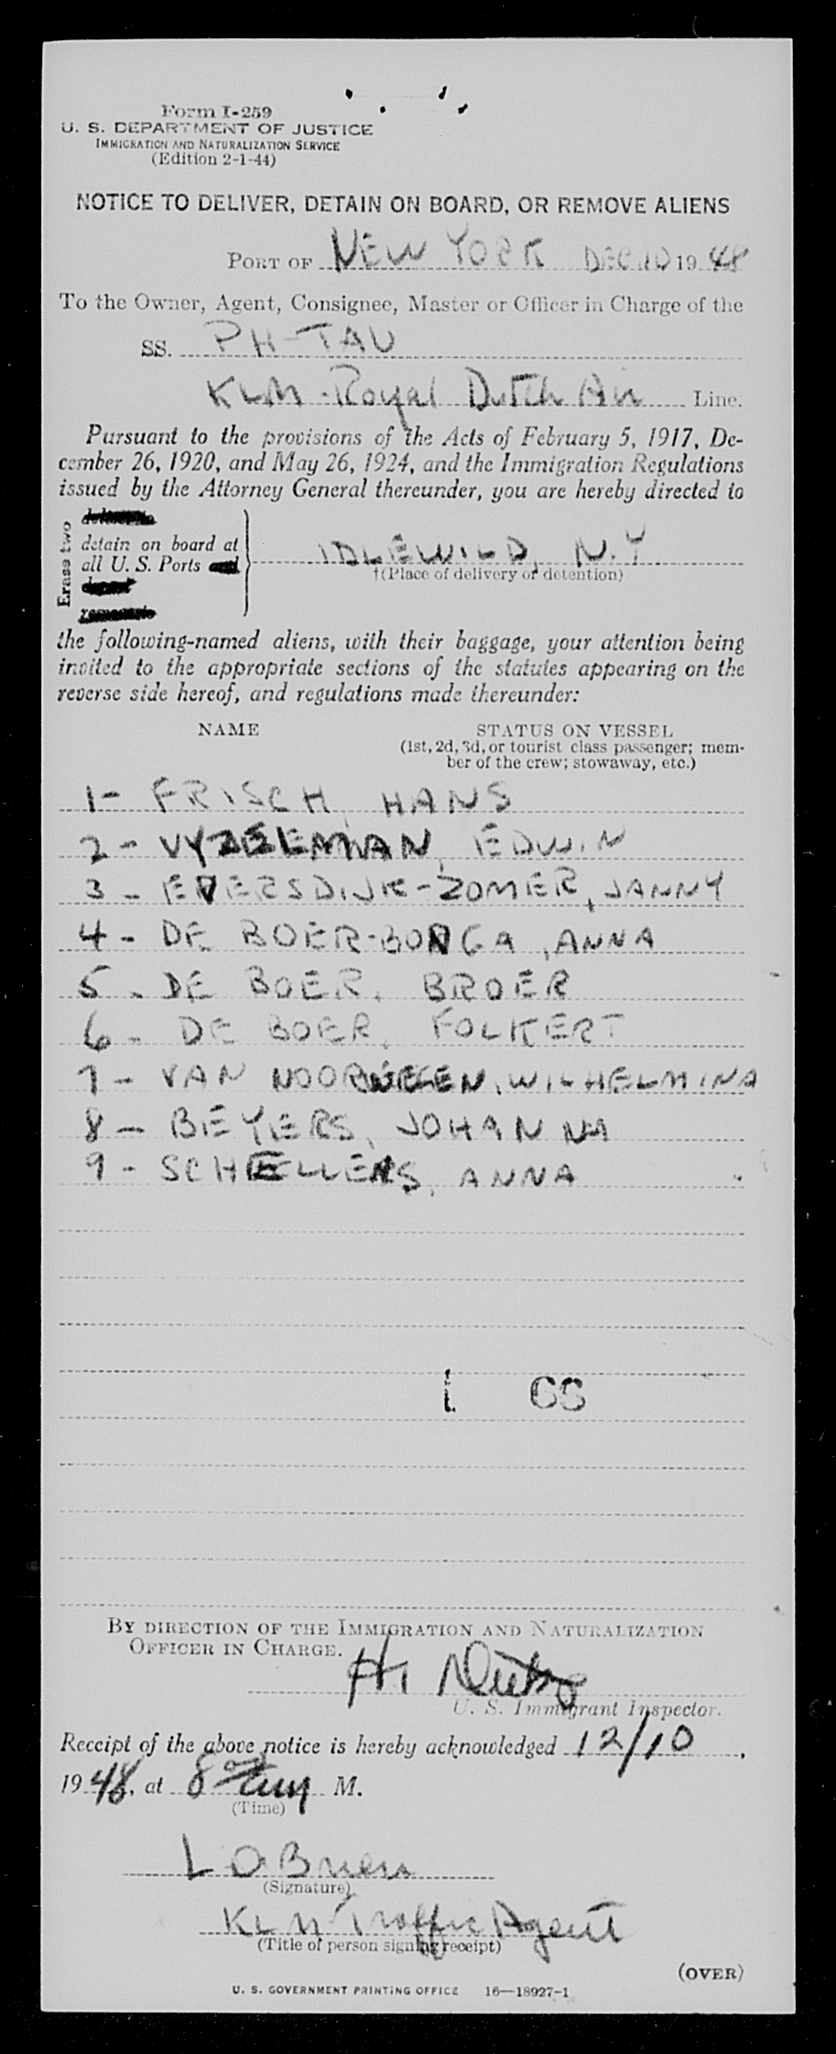 Form I-259
U. S. DEPARTMENT OF JUSTICE
IMMIGRATION AND NATURALIZATION SERVICE
(Edition 2-1-44)
NOTICE TO DELIVER, DETAIN ON BOARD, OR REMOVE ALIENS
PORT OF NEW YORK DEC 10 19 48
To the Owner, Agent, Consignee, Master or Officer in Charge of the
SS. PH-TAU
KLM-Royal Dutch Air Line.
Pursuant to the provisions of the Acts of February 5, 1917, De-
cember 26, 1920, and May 26, 1924, and the Immigration Regulations
issued by the Attorney General thereunder, you are hereby directed to
Erase two
detain on board at
all U. S. Ports
IDLEWILD, N.Y
†(Place of delivery or detention)
the following-named aliens, with their baggage, your attention being
invited to the appropriate sections of the statutes appearing on the
reverse side hereof, and regulations made thereunder:
NAME STATUS ON VESSEL
(1st, 2d, 3d, or tourist class passenger; mem-
ber of the crew; stowaway, etc.)
1- FRISCH, HANS
2- VYZELMAN, EDWIN
3- EVERSDIJK-ZOMER, JANNY
4- DE BOER-BONGA, ANNA
5- DE BOER, BROER
6- DE BOER, FOLKERT
7- VAN WILHELMINA
8- BEYERS, JOHANNA
9- SCHELLENS, ANNA
BY DIRECTION OF THE IMMIGRATION AND NATURALIZATION
OFFICER IN CHARGE.
U. S. Immigrant Inspector.
Receipt of the above notice is hereby acknowledged 12/10,
1948, at 8 M.
(Time)
L O'Brien
(Signature)
KLM Traffic Agent
(Title of person signing receipt)
(OVER)
U. S. GOVERNMENT PRINTING OFFICE 16—18927-1